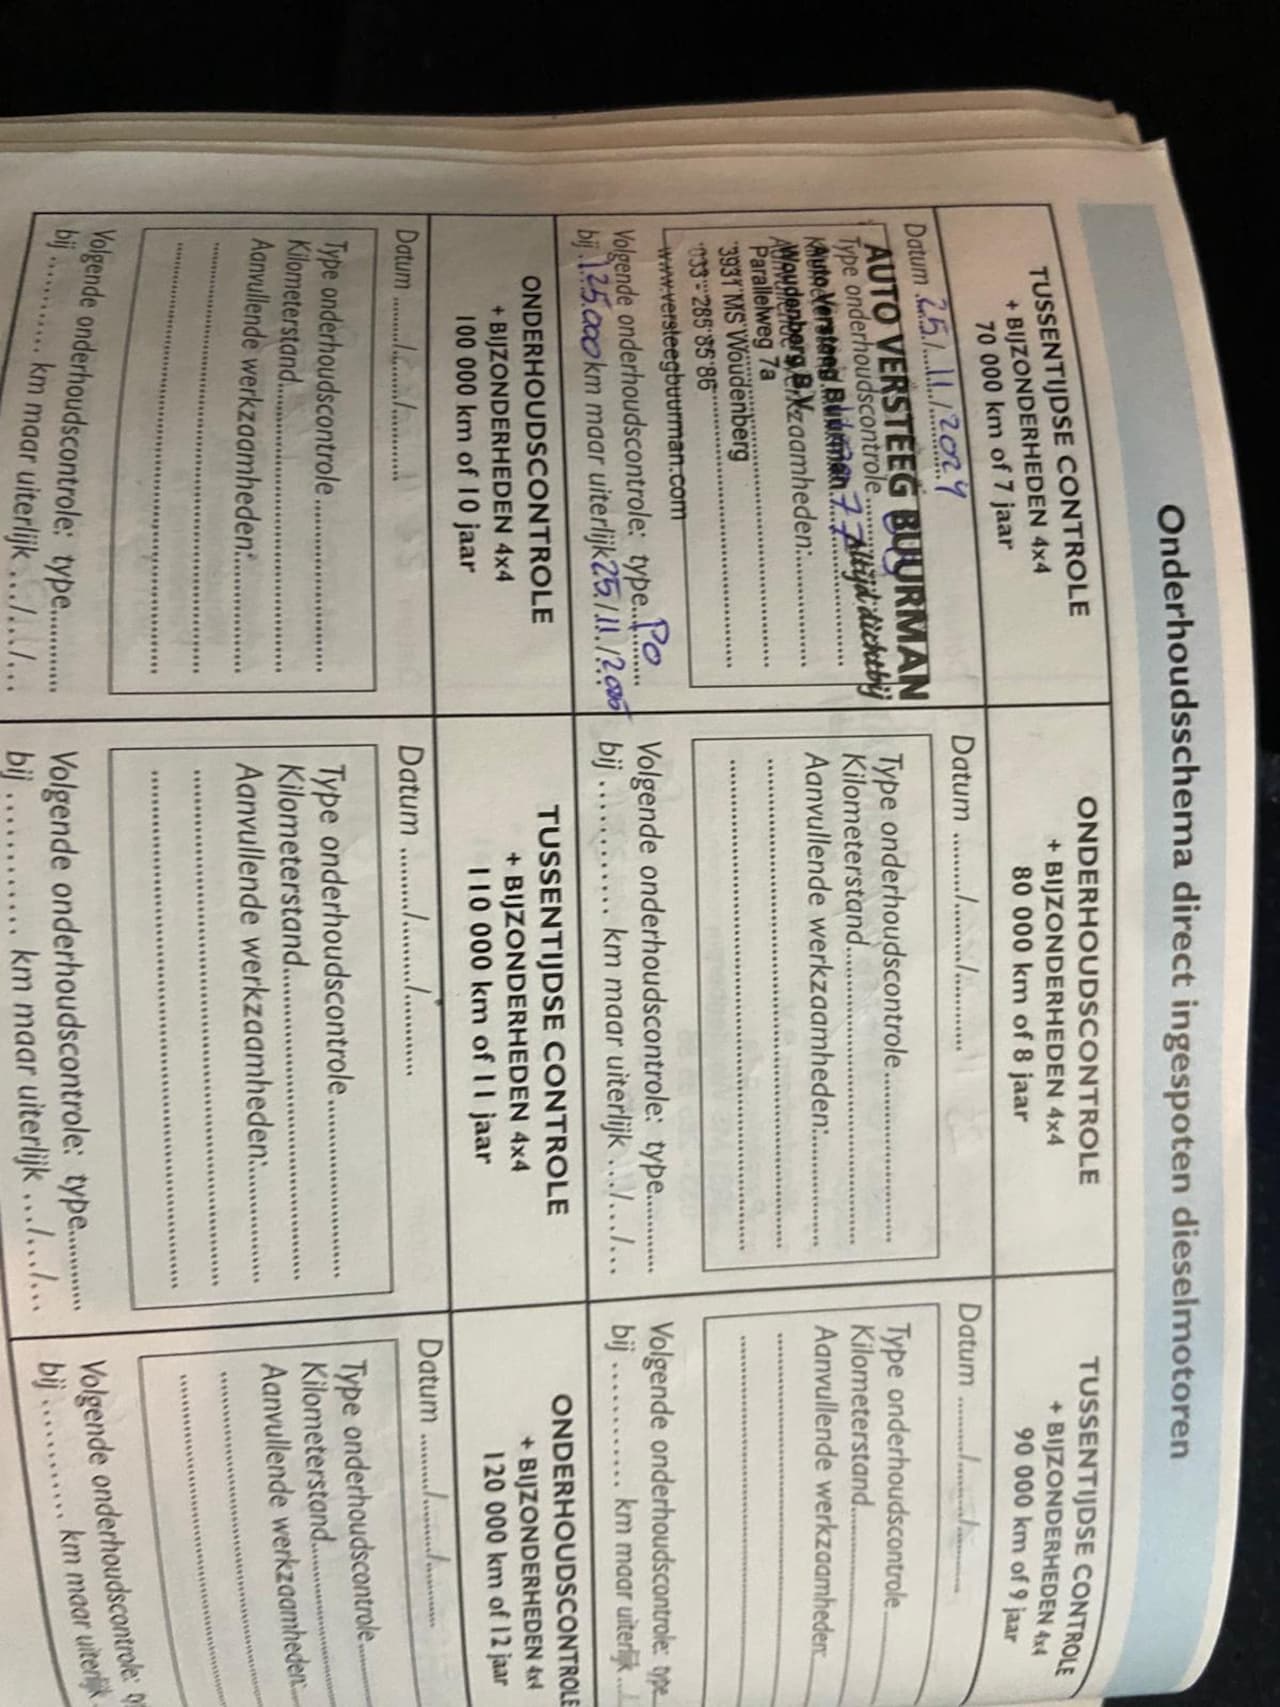 Onderhoudsschema direct ingespoten dieselmotoren
TUSSENTIJDSE CONTROLE
+ BIJZONDERHEDEN 4x4
70 000 km of 7 jaar
Datum 25/11/2024
AUTO VERSTEEG BUURMAN
Type onderhoudscontrole
Altijd dichtbij
Auto Versteeg Buurman
Woudenberg B.V.
Parallelweg 7a
3931 MS Woudenberg
033 - 285 85 86
www.versteegbuurman.com
Volgende onderhoudscontrole: type Po
bij 125.000 km maar uiterlijk 25/11/2025
ONDERHOUDSCONTROLE
+ BIJZONDERHEDEN 4x4
80 000 km of 8 jaar
Datum ......../......../............
Type onderhoudscontrole
Kilometerstand
Aanvullende werkzaamheden:
Volgende onderhoudscontrole: type
bij .......... km maar uiterlijk .../.../...
TUSSENTIJDSE CONTROLE
+ BIJZONDERHEDEN 4x4
90 000 km of 9 jaar
Datum ......../......../............
Type onderhoudscontrole
Kilometerstand
Aanvullende werkzaamheden:
Volgende onderhoudscontrole: type
bij .......... km maar uiterlijk
ONDERHOUDSCONTROLE
+ BIJZONDERHEDEN 4x4
100 000 km of 10 jaar
Datum ......../......../............
Type onderhoudscontrole
Kilometerstand
Aanvullende werkzaamheden:
Volgende onderhoudscontrole: type
bij .......... km maar uiterlijk .../.../...
TUSSENTIJDSE CONTROLE
+ BIJZONDERHEDEN 4x4
110 000 km of 11 jaar
Datum ......../......../............
Type onderhoudscontrole
Kilometerstand
Aanvullende werkzaamheden:
Volgende onderhoudscontrole: type
bij .......... km maar uiterlijk .../.../...
ONDERHOUDSCONTROLE
+ BIJZONDERHEDEN 4x4
120 000 km of 12 jaar
Datum ......../......../............
Type onderhoudscontrole
Kilometerstand
Aanvullende werkzaamheden:
Volgende onderhoudscontrole:
bij .......... km maar uiterlijk